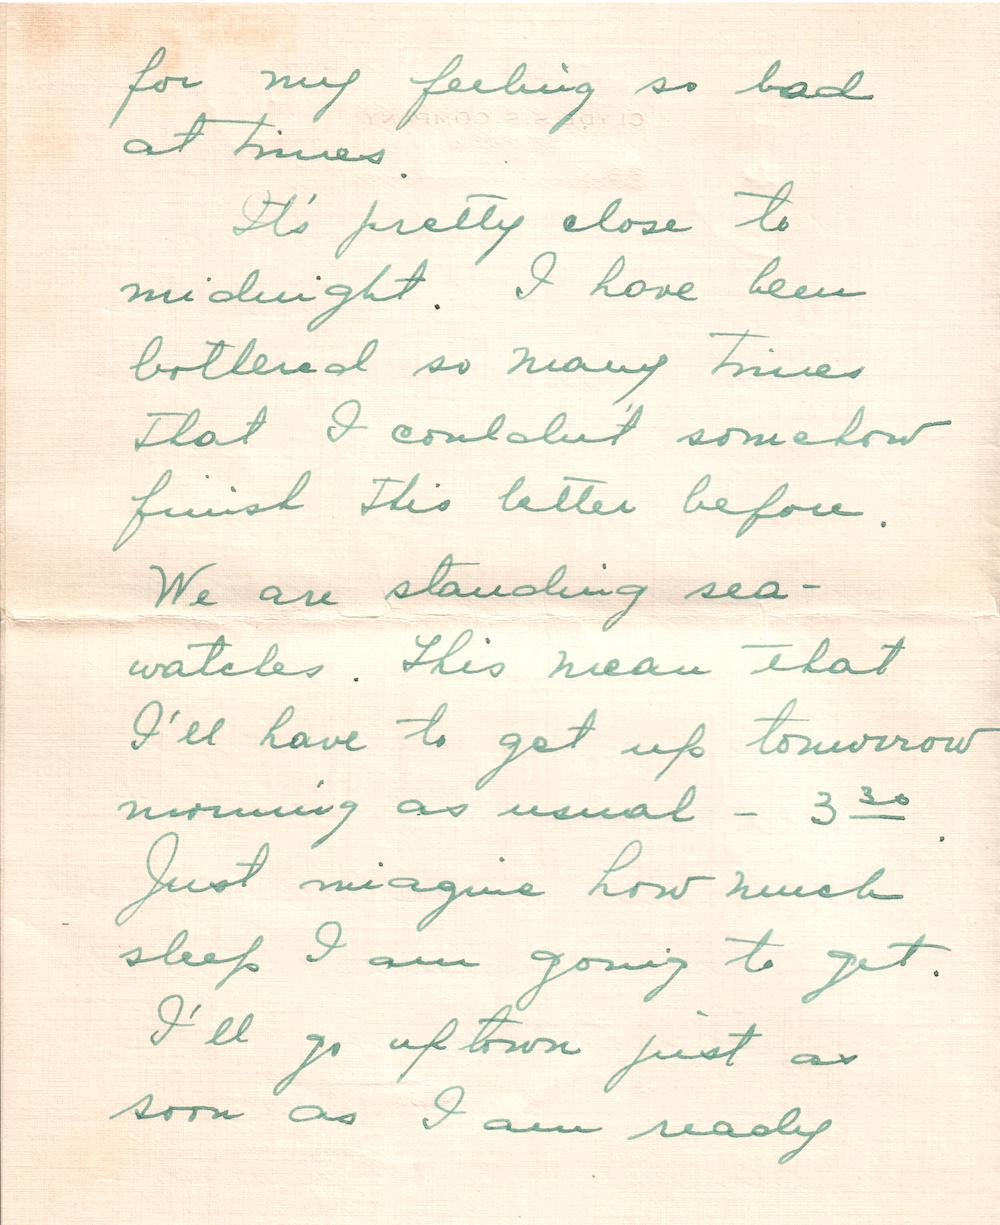 for my feeling so bad
at times.
It's pretty close to
midnight. I have been
bothered so many times
that I couldn't somehow
finish this letter before.
We are standing sea-
watches. This mean that
I'll have to get up tomorrow
morning as usual - 3 30.
Just imagine how much
sleep I am going to get.
I'll go uptown just as
soon as I am ready